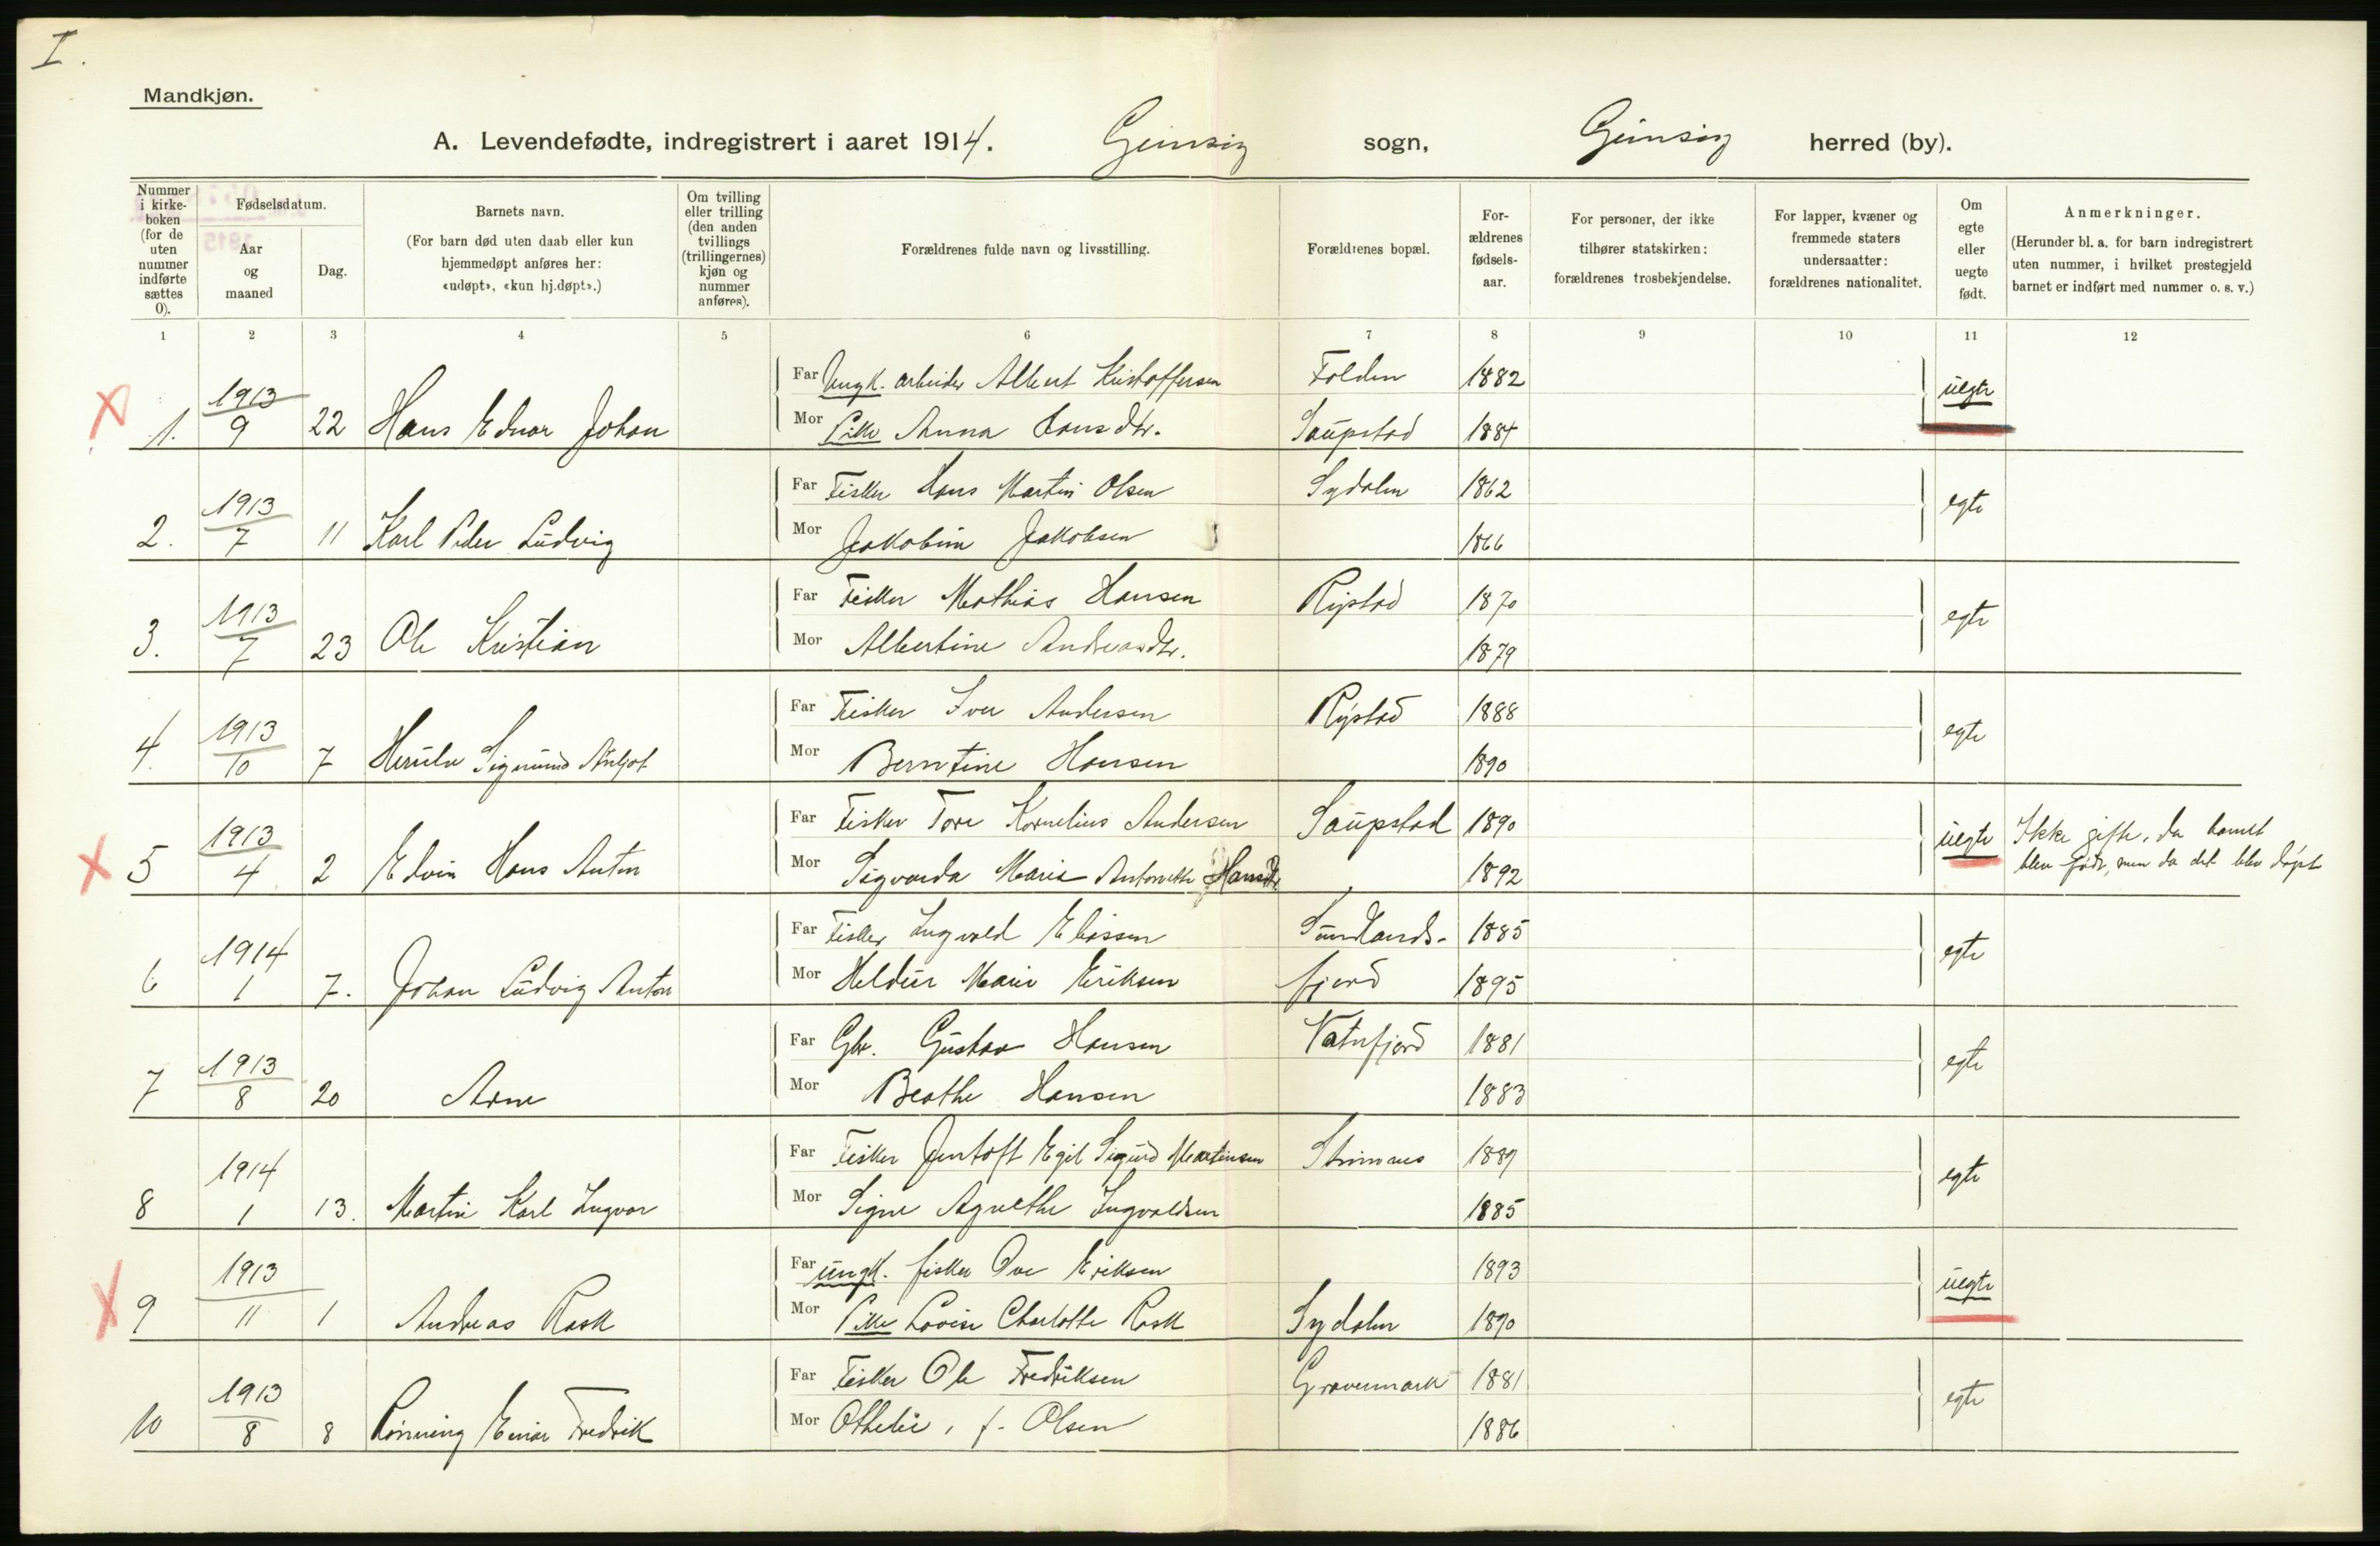 I.
Mandkjøn.
A. Levendefødte, indregistrert i aaret 1914. Gimsøy sogn, Gimsøy herred (by).
Nummer i kirkeboken (for de uten nummer indførte sættes 0).
Fødselsdatum.
Aar og maaned
Dag.
Barnets navn.
(For barn død uten daab eller kun hjemmedøpt anføres her: «udøpt», «kun hj.døpt».)
Om tvilling eller trilling (den anden tvillings (trillingernes) kjøn og nummer anføres).
Forældrenes fulde navn og livsstilling.
Forældrenes bopæl.
Forældrenes fødselsaar.
For personer, der ikke tilhører statskirken: forældrenes trosbekjendelse.
For lapper, kvæner og fremmede staters undersaatter: forældrenes nationalitet.
Om egte eller uegte født.
Anmerkninger.
(Herunder bl. a. for barn indregistrert uten nummer, i hvilket prestegjeld barnet er indført med nummer o. s. v.)
1 2 3 4 5 6 7 8 9 10 11 12
X 1. 1913/9 22 Hans Edvar Johan
Far Ungk. arbeider Albert Kristoffersen Folden 1882 uegte
Mor Pike Anna Hansdtr. Saupstad 1884
2. 1913/7 11 Karl Peder Ludvig
Far Fisker Hans Martin Olsen Sydalen 1862 egte
Mor Jakobine Jakobsen 1866
3. 1913/7 23 Ole Kristian
Far Fisker Mathias Hansen Rystad 1870 egte
Mor Albertine Andreasdtr. 1879
4. 1913/10 7 Herulv Sigmund
Far Fisker Iver Andersen Rystad 1888 egte
Mor Berntine Hansen 1890
X 5 1913/4 2 Edvin Hans Anton
Far Fisker Tore Kornelius Andersen Saupstad 1890 uegte Ikke gifte, da barnet
Mor Sigvarda Marie Antonette Hansdtr. 1892 blev født, men da det blev døpt
6 1914 1 7. Johan Ludvig Anton
Far Fisker Ingvald Eliassen Sundlands- 1885 egte
Mor Heldur Marie Eriksen fjord 1895
7 1913/8 20 Arne
Far Gbr. Gustav Hansen Vatnfjord 1881 egte
Mor Beathe Hansen 1883
8 1914 1 13. Martin Karl Ingvar
Far Fisker Jentoft Egil Sigurd Martinsen 1889 egte
Mor Signe Agnethe Ingvaldsen 1885
X 9 1913/11 1 Andreas Rask
Far ungk. fisker Ove Eriksen 1893 uegte
Mor Pike Lovise Charlotte Rask Sydalen 1890
10 1913/8 8 Rønning Einar Fredrik
Far Fisker Ole Fredriksen Gravermark 1881 egte
Mor Othelie, f. Olsen 1886